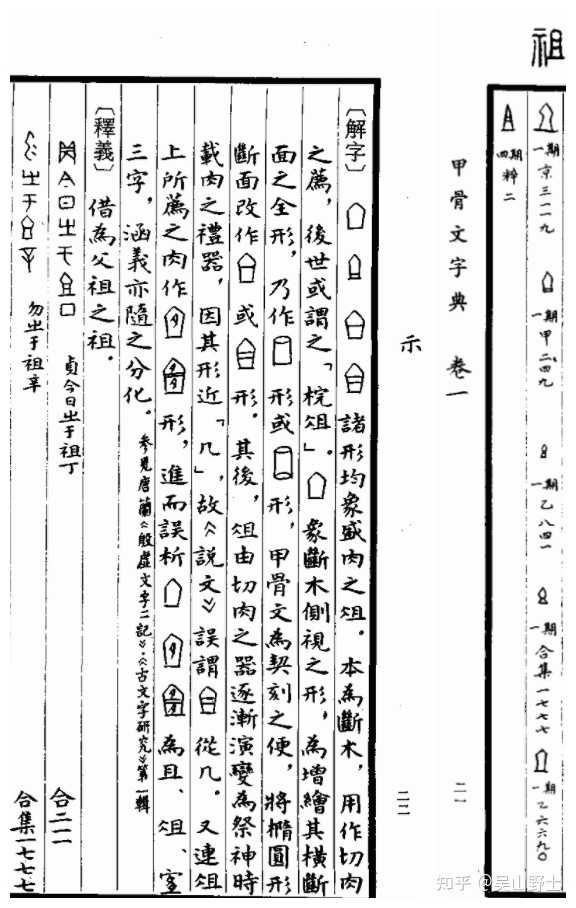 祖
一期 京三一一九 一期 甲二〇四九 一期 乙八四一 一期 合集一七七七 一期 乙六六九〇
四期 粹二
甲骨文字典 卷一 二一
示 二二
〔解字〕 諸形均象盛肉之俎。本為斷木，用作切肉
之薦，後世或謂之「梡俎」。 象斷木側視之形，為增繪其橫斷
面之全形，乃作 形或 形，甲骨文為契刻之便，將橢圓形
斷面改作 或 形。其後，俎由切肉之器逐漸演變為祭神時
載肉之禮器，因其形近「几」，故《說文》誤謂 從几。又連俎
上所薦之肉作 形，進而誤析 為且、俎、宜
三字，涵義亦隨之分化。參見唐蘭《殷虛文字二記》：《古文字研究》第一輯
〔釋義〕 借為父祖之祖。
貞今日㞢于祖丁 合二一一
勿㞢于祖辛 合集一七七七
知乎 @吴山野士